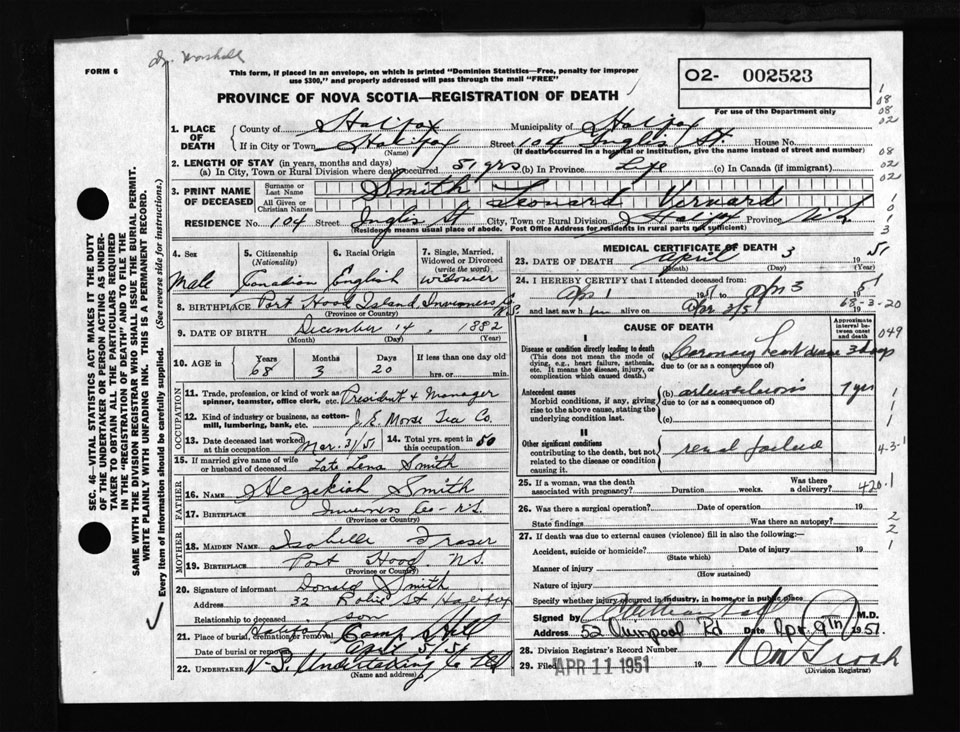 Dr. Marshall
FORM 6
This form, if placed in an envelope, on which is printed "Dominion Statistics—Free, penalty for improper
use $300," and properly addressed will pass through the mail "FREE"
PROVINCE OF NOVA SCOTIA—REGISTRATION OF DEATH
O2- 002523
For use of the Department only
1. PLACE OF DEATH
County of Halifax Municipality of Halifax
If in City or Town Halifax Street 104 Inglis St. House No.
(Name) (If death occurred in a hospital or institution, give the name instead of street and number)
2. LENGTH OF STAY (in years, months and days)
(a) In City, Town or Rural Division where death occurred 51 yrs (b) In Province Life (c) In Canada (if immigrant)
3. PRINT NAME OF DECEASED
Surname or Last Name Smith
All Given or Christian Names Leonard Vernard
RESIDENCE No. 104 Street Inglis St City, Town or Rural Division Halifax Province N.S.
(Residence means usual place of abode. Post Office Address for residents in rural parts not sufficient)
4. Sex
Male
5. Citizenship (Nationality)
Canadian
6. Racial Origin
English
7. Single, Married, Widowed or Divorced (write the word)
Widower
8. BIRTHPLACE Port Hood Island Inverness Co N.S.
(Province or Country)
9. DATE OF BIRTH December 14, 1882
(Month) (Day) (Year)
10. AGE in Years Months Days If less than one day old
68 3 20 hrs. or min.
OCCUPATION
11. Trade, profession, or kind of work as spinner, teamster, office clerk, etc. President & Manager
12. Kind of industry or business, as cotton-mill, lumbering, bank, etc. J.E. Morse Tea Co.
13. Date deceased last worked at this occupation Mar. 31/51
14. Total yrs. spent in this occupation 50
15. If married give name of wife or husband of deceased Late Lena Smith
FATHER
16. NAME Hezekiah Smith
17. BIRTHPLACE Inverness Co - N.S.
(Province or Country)
MOTHER
18. MAIDEN NAME Isobelle Fraser
19. BIRTHPLACE Port Hood, N.S.
(Province or Country)
20. Signature of informant Donald Smith
Address 32 Robie St Halifax
Relationship to deceased son
21. Place of burial, cremation or removal Halifax Camp Hill
Date of burial or removal April 5/51
22. UNDERTAKER N.S. Undertaking Co Ltd
(Name and address)
MEDICAL CERTIFICATE OF DEATH
23. DATE OF DEATH April 3 1951
(Month) (Day)
24. I HEREBY CERTIFY that I attended deceased from:
Apr 1 1951 to Apr 3 1951
and last saw him alive on Apr 3/51
68-3-20
CAUSE OF DEATH
Approximate interval between onset and death
I
Disease or condition directly leading to death
(This does not mean the mode of dying, e.g., heart failure, asthenia, etc. It means the disease, injury, or complication which caused death.)
(a) Coronary heart disease 3 days
due to (or as a consequence of)
Antecedent causes
Morbid conditions, if any, giving rise to the above cause, stating the underlying condition last.
(b) arteriosclerosis 1 yrs
due to (or as a consequence of)
(c)
II
Other significant conditions
contributing to the death, but not related to the disease or condition causing it.
renal failure
25. If a woman, was the death associated with pregnancy? Duration weeks. Was there a delivery?
420.1
26. Was there a surgical operation? Date of operation 19
State findings Was there an autopsy?
27. If death was due to external causes (violence) fill in also the following:—
Accident, suicide or homicide? Date of injury 19
(State which)
Manner of injury
(How sustained)
Nature of injury
Specify whether injury occurred in industry, in home, or in public place
Signed by M.D.
Address 52 Quinpool Rd Date Apr. 9th 1951.
28. Division Registrar's Record Number
29. Filed APR 11 1951 19
(Division Registrar)
SEC. 46—VITAL STATISTICS ACT MAKES IT THE DUTY
OF THE UNDERTAKER OR PERSON ACTING AS UNDER-
TAKER TO OBTAIN ALL THE PARTICULARS REQUIRED
IN THE "REGISTRATION OF DEATH" AND TO FILE THE
SAME WITH THE DIVISION REGISTRAR WHO SHALL ISSUE THE BURIAL PERMIT.
WRITE PLAINLY WITH UNFADING INK. THIS IS A PERMANENT RECORD.
Every item of Information should be carefully supplied. (See reverse side for instructions.)